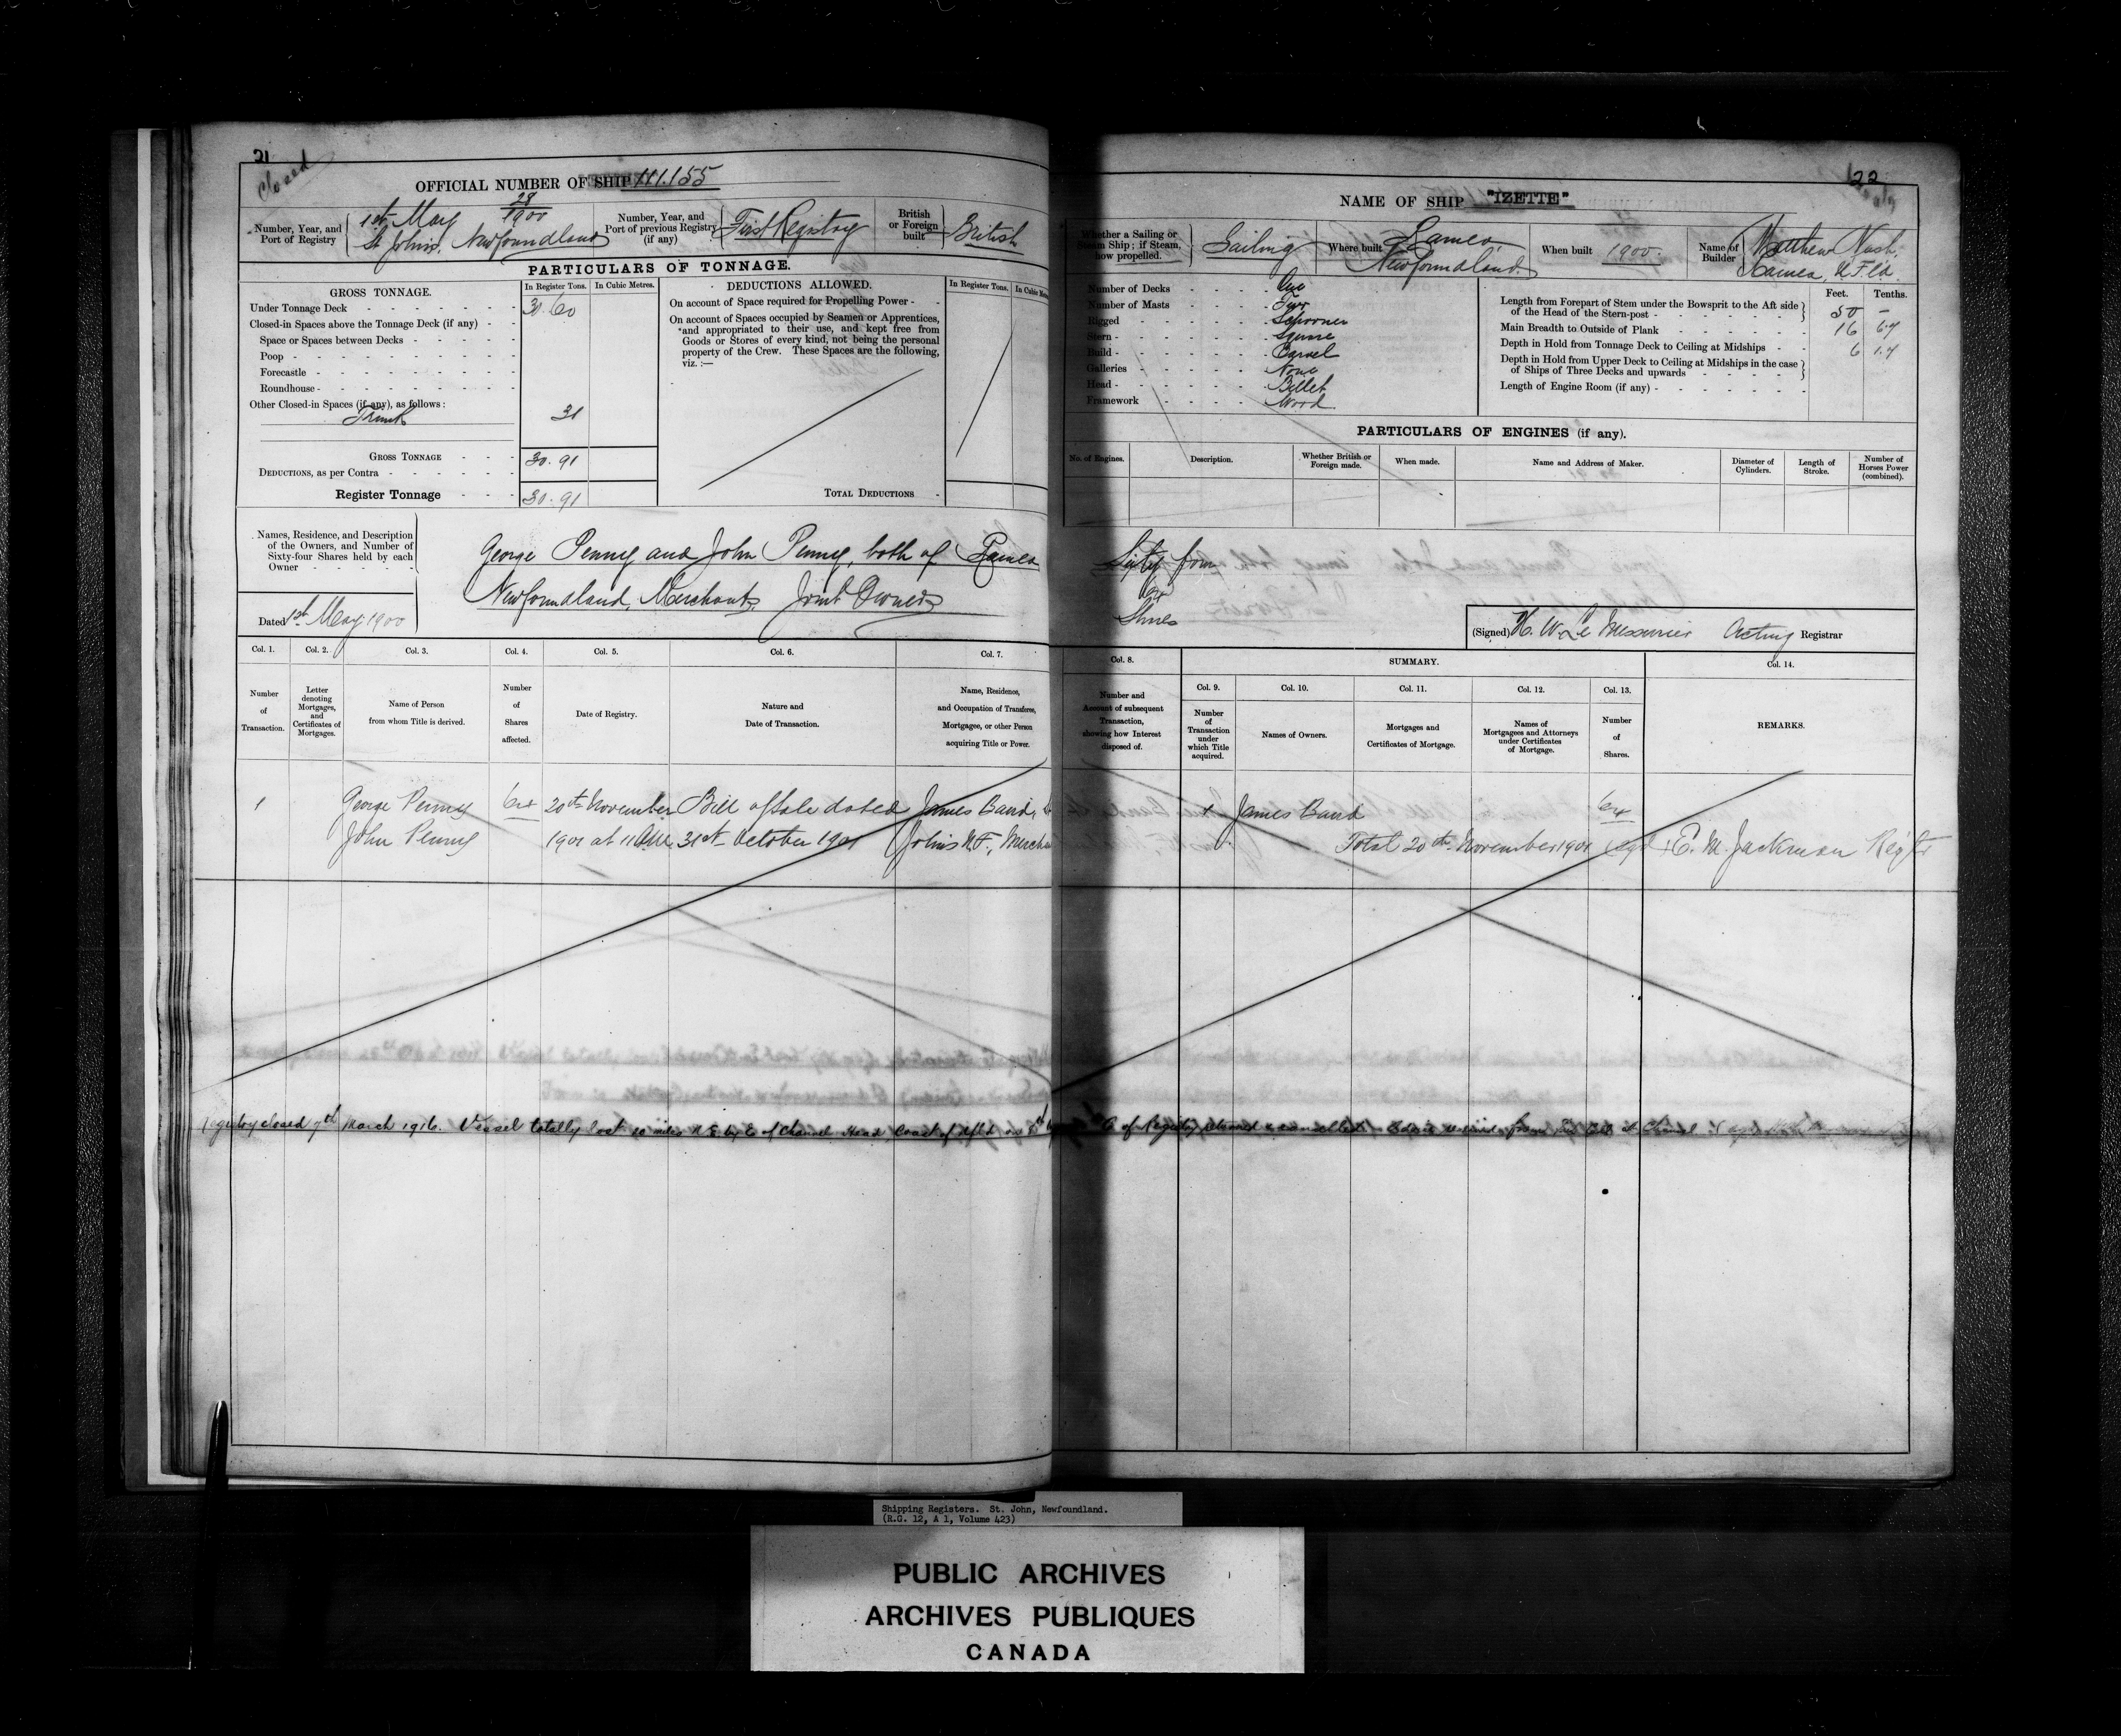 21
Closed
OFFICIAL NUMBER OF SHIP 111.155
Number, Year, and Port of Registry
28/1900
1st May
St John's, Newfoundland
Number, Year, and Port of previous Registry (if any)
First Registry
British or Foreign built
British
PARTICULARS OF TONNAGE.
GROSS TONNAGE.
In Register Tons.
In Cubic Metres.
Under Tonnage Deck 30.60
Closed-in Spaces above the Tonnage Deck (if any)
Space or Spaces between Decks
Poop
Forecastle
Roundhouse
Other Closed-in Spaces (if any), as follows:
Trunk 31
GROSS TONNAGE 30.91
DEDUCTIONS, as per Contra
Register Tonnage 30.91
DEDUCTIONS ALLOWED.
In Register Tons.
In Cubic
On account of Space required for Propelling Power
On account of Spaces occupied by Seamen or Apprentices,
and appropriated to their use, and kept free from
Goods or Stores of every kind, not being the personal
property of the Crew. These Spaces are the following,
viz.:—
TOTAL DEDUCTIONS
Names, Residence, and Description
of the Owners, and Number of
Sixty-four Shares held by each
Owner
George Penny and John Penny, both of Ramea
Newfoundland, Merchants, Joint Owners
Dated 1st May 1900
Col. 1.
Number of Transaction.
Col. 2.
Letter denoting Mortgages, and Certificates of Mortgages.
Col. 3.
Name of Person from whom Title is derived.
Col. 4.
Number of Shares affected.
Col. 5.
Date of Registry.
Col. 6.
Nature and Date of Transaction.
Col. 7.
Name, Residence, and Occupation of Transferee, Mortgagee, or other Person acquiring Title or Power.
1 George Penny 64 20th November Bill of Sale dated James Baird,
John Penny 1901 at 11 A.M. 31st October 1901 Johns N.F.,
Registry closed 7th March 1916. Vessel totally lost 10 miles N.E. by E of Channel Head Coast of Nfld
22
NAME OF SHIP "IZETTE"
Whether a Sailing or Steam Ship; if Steam, how propelled.
Sailing
Where built
Ramea,
Newfoundland.
When built 1900.
Name of Builder
Matthew Nash,
Ramea, N.F.ld.
Number of Decks One
Number of Masts Two
Rigged Schooner
Stern Square
Build Carvel
Galleries None
Head Billet
Framework Wood
Feet. Tenths.
Length from Forepart of Stem under the Bowsprit to the Aft side
of the Head of the Stern-post 50 –
Main Breadth to Outside of Plank 16 6.7
Depth in Hold from Tonnage Deck to Ceiling at Midships 6 1.7
Depth in Hold from Upper Deck to Ceiling at Midships in the case
of Ships of Three Decks and upwards
Length of Engine Room (if any)
PARTICULARS OF ENGINES (if any).
No. of Engines.
Description.
Whether British or Foreign made.
When made.
Name and Address of Maker.
Diameter of Cylinders.
Length of Stroke.
Number of Horses Power (combined).
Sixty four
64
Shares
(Signed) H. W. Le Messurier Acting Registrar
Col. 8.
Number and Amount of subsequent Transaction, showing how Interest disposed of.
SUMMARY.
Col. 9.
Number of Transaction under which Title acquired.
Col. 10.
Names of Owners.
Col. 11.
Mortgages and Certificates of Mortgage.
Col. 12.
Names of Mortgagees and Attorneys under Certificates of Mortgage.
Col. 13.
Number of Shares.
Col. 14.
REMARKS.
1 James Baird 64
Total 20th November 1901 E. M. Jackman Regstr
of Registry returned & cancelled
Shipping Registers. St. John, Newfoundland.
(R.G. 12, A 1, Volume 423)
PUBLIC ARCHIVES
ARCHIVES PUBLIQUES
CANADA